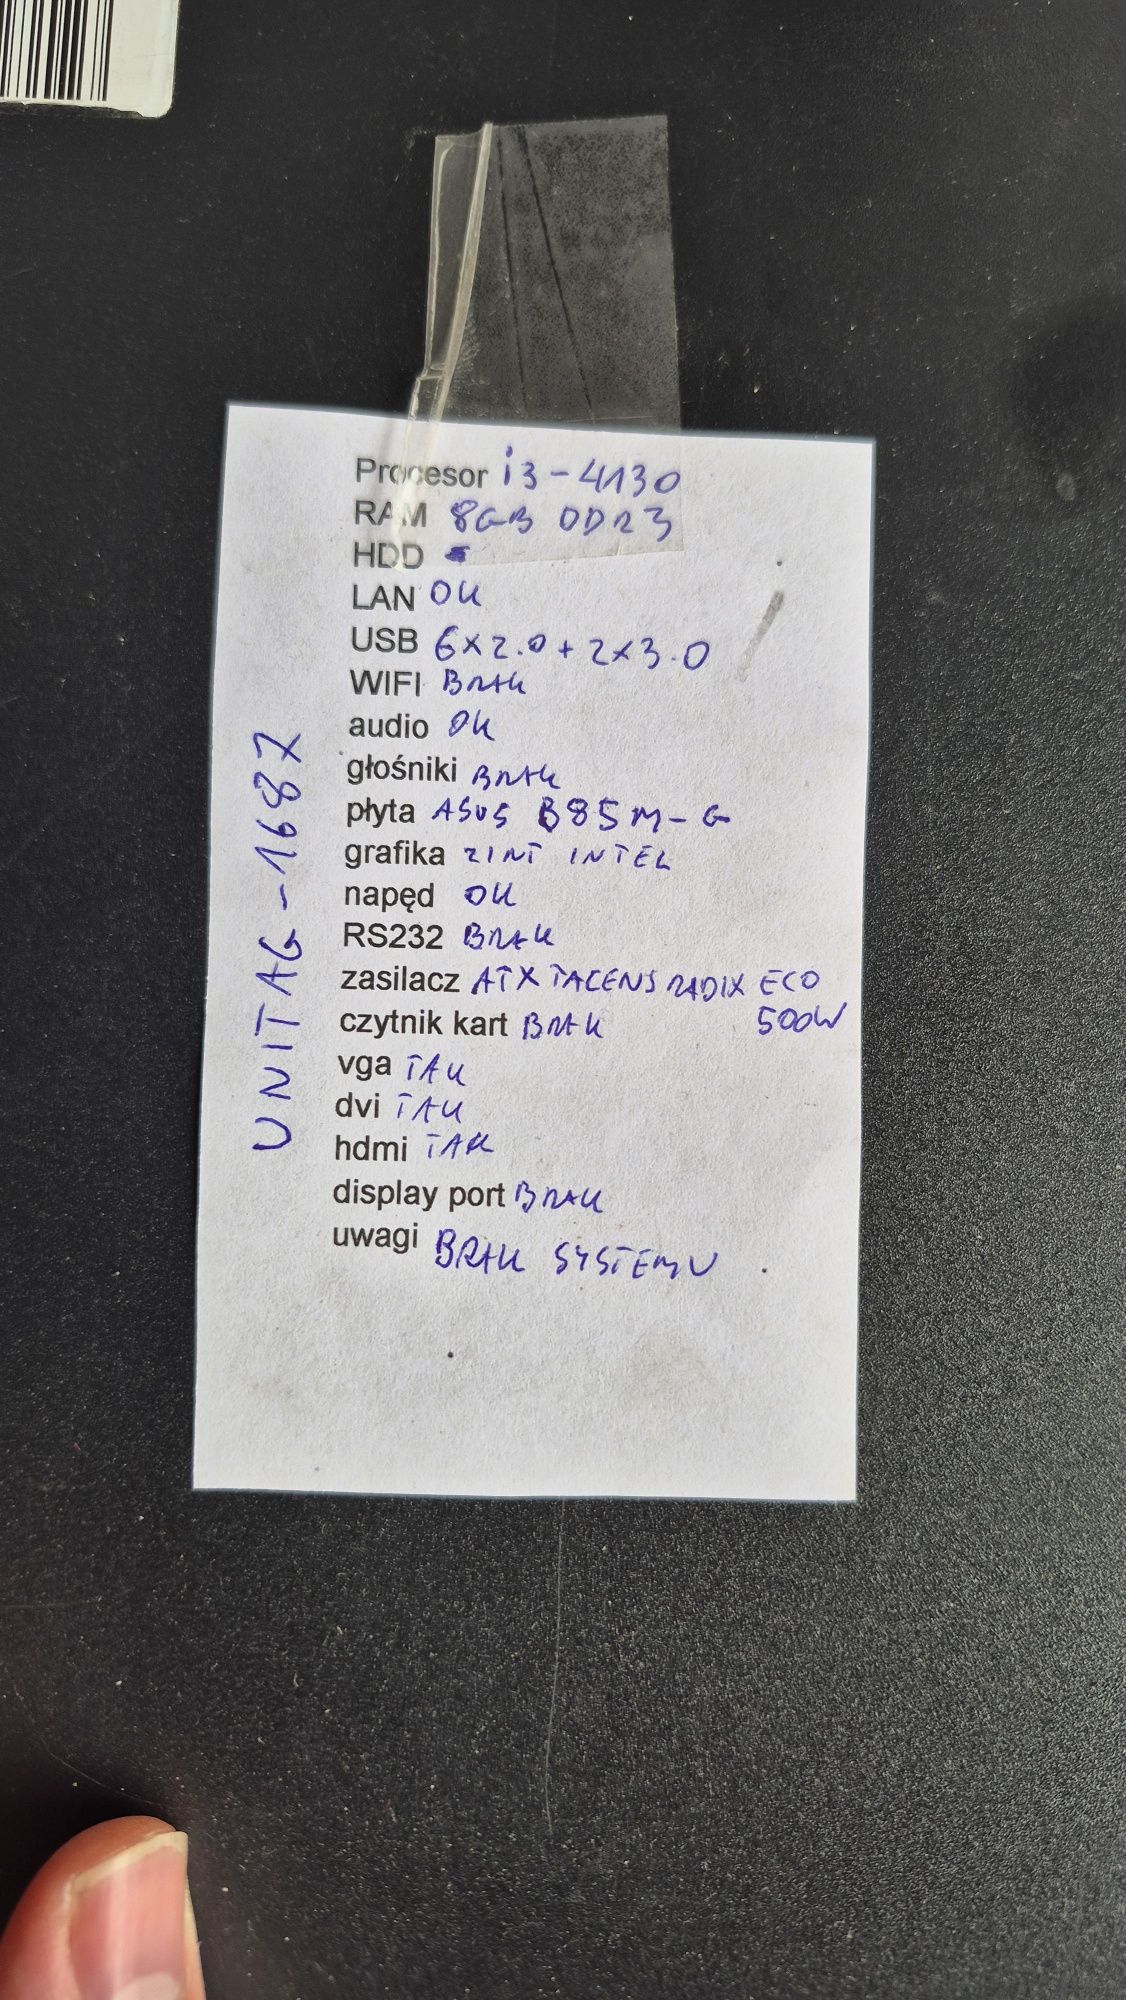 Procesor i3-4130
RAM 8GB DDR3
HDD -
LAN OK
USB 6x2.0 + 2x3.0
WIFI BRAK
audio OK
głośniki BRAK
płyta ASUS B85M-G
grafika ZINT INTEL
napęd OK
RS232 BRAK
zasilacz ATX TACENS RADIX ECO
500W
czytnik kart BRAK
vga TAK
dvi TAK
hdmi TAK
display port BRAK
uwagi BRAK SYSTEMU
UNITAG-1687